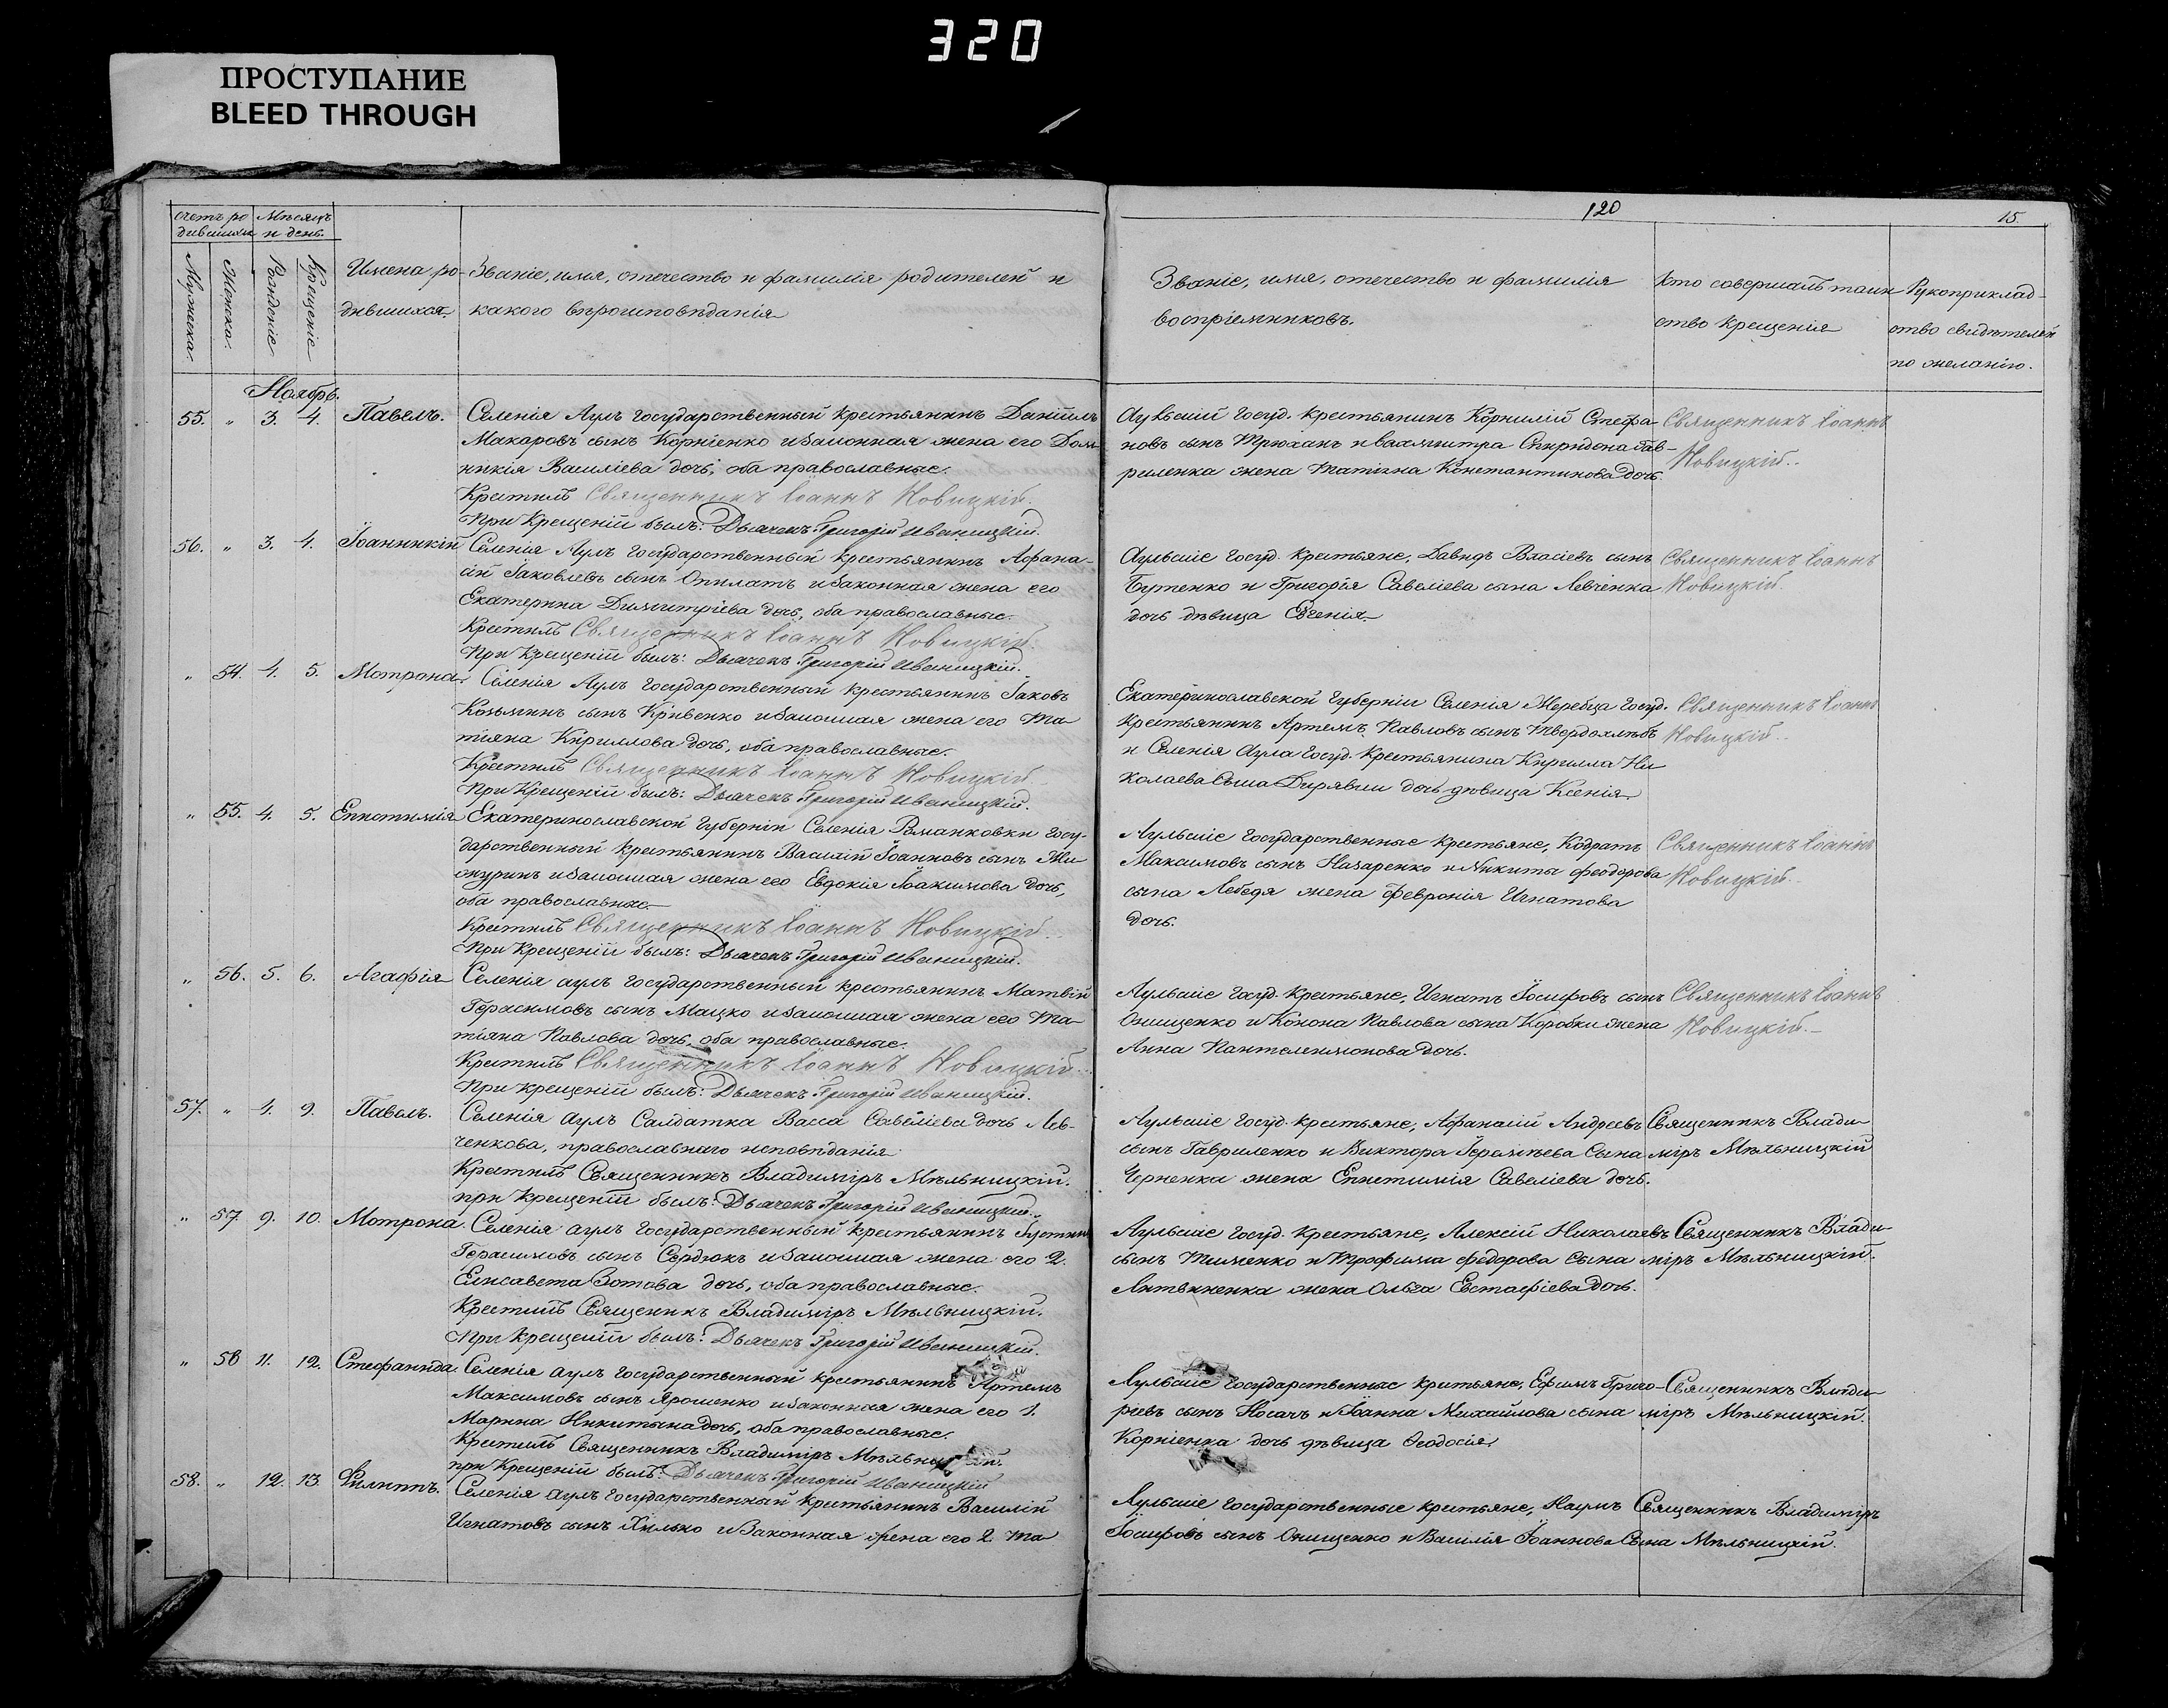 320
ПРОСТУПАНИЕ
BLEED THROUGH
120
15
Счетъ ро
дившихся
Мѣсяцъ
и день.
Мужеска.
Женска.
Рожденіе
Крещеніе
Имена ро-
дившихся.
Званіе, имя, отечество и фамилія родителей и
какого вѣроисповѣданія
Званіе, имя, отечество и фамилія
воспріемниковъ.
Кто совершалъ таин
ство крещенія
Рукоприклад-
ство свидѣтелей
по желанію.
Ноябрь.
55. " 3. 4. Павелъ.
Селенія Аулъ государственный крестьянинъ Даніилъ
Макаровъ сынъ Корніенко и законная жена его Дом
никія Василіева дочь, оба православные.
Крестилъ Священникъ Іоаннъ Новицкій.
При Крещеніи былъ: Дьячекъ Григорій Иваницкій.
Аульскій госуд. крестьянинъ Корнилій Стефа-
новъ сынъ Трюханъ и вахмистра Спиридона Гав-
риленка жена Татіяна Константинова дочь.
Священникъ Іоаннъ
Новицкій.
56. " 3. 4. Іоанникій
Селенія Аулъ государственный крестьянинъ Афана-
сій Іаковлевъ сынъ Опплатъ и законная жена его
Екатерина Димитріева дочь, оба православные.
Крестилъ Священникъ Іоаннъ Новицкій.
При Крещеніи былъ: Дьячекъ Григорій Иваницкій.
Аульскіе госуд. крестьяне, Давидъ Власіевъ сынъ
Бутенко и Григорія Савеліева сына Левченка
дочь дѣвица Евгенія.
Священникъ Іоаннъ
Новицкій.
" 54. 4. 5. Мотрона.
Селенія Аулъ государственный крестьянинъ Іаковъ
Козьминъ сынъ Кривенко и законная жена его Та-
тіяна Кириллова дочь, оба православные.
Крестилъ Священникъ Іоаннъ Новицкій
При Крещеніи былъ: Дьячекъ Григорій Иваницкій.
Екатеринославской Губерніи Селенія Жеребца Госуд.
крестьянинъ Артемъ Павловъ сынъ Твердохлѣбъ
и Селенія Аула Госуд. крестьянина Кирилла Ни
колаева Сына дочь дѣвица Ксенія.
Священникъ Іоаннъ
Новицкій.
" 55. 4. 5. Епистимія
Екатеринославской Губерніи Селенія Романковки госу-
дарственный крестьянинъ Василій Іоанновъ сынъ
и законная жена его Евдокія Іоакимова дочь,
оба православные.
Крестилъ Священникъ Іоаннъ Новицкій.
При Крещеніи былъ: Дьячекъ Григорій Иваницкій.
Аульскіе государственные крестьяне, Кодратъ
Максимовъ сынъ Назаренко и Никиты Феодорова
сына Лебедя жена Февронія Игнатова
дочь.
Священникъ Іоаннъ
Новицкій.
" 56. 5. 6. Агафія
Селенія аулъ государственный крестьянинъ Матвій
Герасимовъ сынъ Мацко и законная жена его Та-
тіяна Павлова дочь, оба православные.
Крестилъ Священникъ Іоаннъ Новицкій.
При крещеніи былъ: Дьячекъ Григорій Иваницкій.
Аульскіе госуд. крестьяне, Игнатъ Іосифовъ сынъ
Онищенко и Конона Павлова сына Коробки жена
Анна Пантелеимонова дочь.
Священникъ Іоаннъ
Новицкій.
57. " 4. 9. Павелъ.
Селенія аулъ Салдатка Васса Савеліева дочь Лев-
ченкова, православнаго исповѣданія
Крестилъ Священникъ Владиміръ Мѣльницкій.
При крещеніи былъ: Дьячекъ Григорій Иваницкій.
Аульскіе госуд. крестьяне, Афанасій Андреевъ
сынъ Гавриленко и Виктора Іереміева Сына
Черненка жена Епистимія Савеліева дочь.
Священникъ Влади
міръ Мѣльницкій
" 57. 9. 10. Мотрона.
Селенія аулъ государственный крестьянинъ Іустинъ
Герасимовъ сынъ Сердюкъ и законная жена его 2.
Елисавета Зотова дочь, оба православные.
Крестилъ Священникъ Владиміръ Мѣльницкій.
При крещеніи былъ: Дьячекъ Григорій Иваницкій.
Аульскіе госуд. крестьяне, Алексій Николаевъ
сынъ Тименко и Трофима Федорова Сына
Литвиненка жена Ольга Евстафіева дочь.
Священникъ Влади-
міръ Мѣльницкій.
" 58 11. 12. Стефанида.
Селенія аулъ государственный крестьянинъ Артемъ
Максимовъ сынъ Ярошенко и законная жена его 1.
Марина Никитина дочь, оба православные.
Крестилъ Священникъ Владиміръ Мѣльницкій.
При Крещеніи былъ: Дьячекъ Григорій Иваницкій
Аульскіе государственные крестьяне, Ефимъ Григо-
рьевъ сынъ Носачъ и Іоанна Михайлова сына
Корніенка дочь дѣвица Феодосія.
Священникъ Влади-
міръ Мѣльницкій.
58. " 12. 13. Филиппъ.
Селенія аулъ государственный крестьянинъ Василій
Игнатовъ сынъ Хилько и Законная жена его 2. Та
Аульскіе государственные крестьяне, Наумъ
Іосифовъ сынъ Онищенко и Василія Іоаннова Сына
Священникъ Владиміръ
Мѣльницкій.